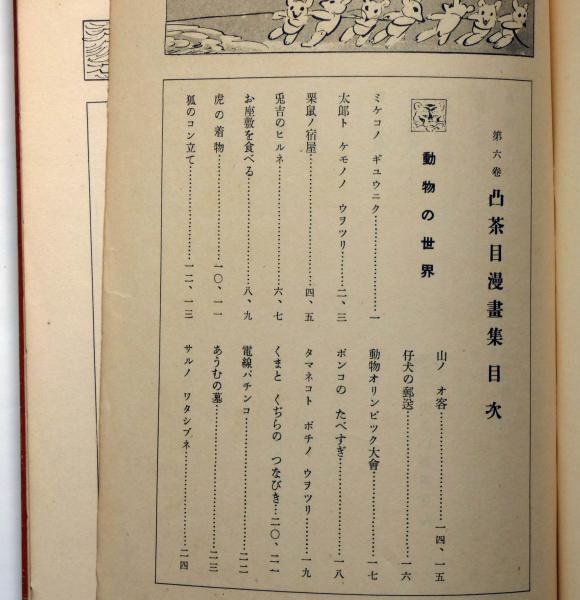 第六卷 凸茶目漫畫集 目次
動物の世界
ミケコノ ギユウニク……一
太郎ト ケモノノ ウヲツリ……二、三
栗鼠ノ宿屋……四、五
兎吉のヒルネ……六、七
お座敷を食べる……八、九
虎の着物……一〇、一一
狐のコン立て……一二、一三
山ノ オ客……一四、一五
仔犬の郵送……一六
動物オリンピツク大會……一七
ポンコの たべすぎ……一八
タマネコト ポチノ ウヲツリ……一九
くまと くぢらの つなびき…二〇、二一
電線パチンコ……二二
あうむの墓……二三
サルノ ワタシブネ……二四